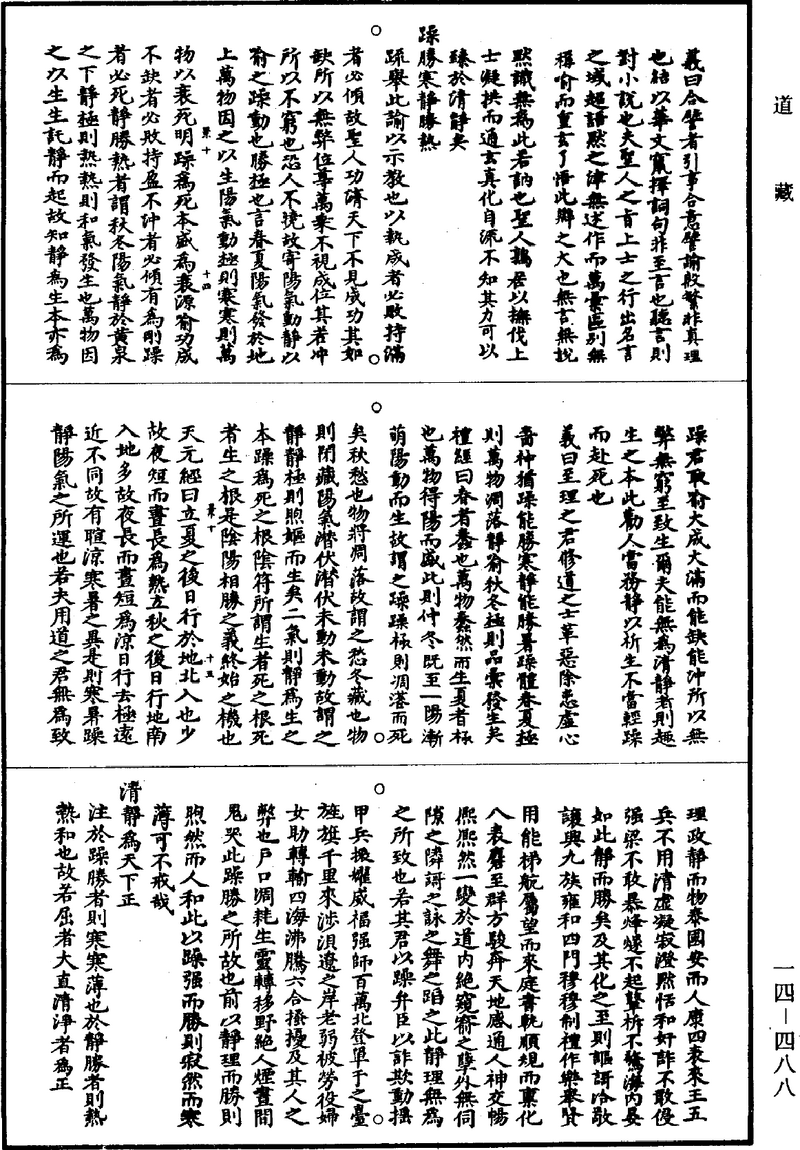 道藏
義曰合譬者引事合意譬諭殷繁非真理
也結以華文竄擇詞句非至言也聽言則
對小說也夫聖人之旨上士之行出名言
之域超語默之津無述作而萬彙區別無
稱喻而重玄了悟此辯之大也無言無說
默識無為此若訥也聖人鶉居以撫伐上
士凝拱而通玄真化自流不知其力可以
臻於清靜矣
躁勝寒靜勝熱
疏舉此諭以示教也以執成者必敗持滿
者必傾故聖人功濟天下不見成功其如
缺所以無弊位尊萬乘不視成位其若冲
所以不窮也恐人不曉故寄陽氣動靜以
喻之躁動也勝極也言春夏陽氣發於地
上萬物因之以生陽氣動極則寒寒則萬
物以衰死明躁為死本盛為衰源喻功成
不缺者必敗持盈不沖者必傾有為剛躁
者必死靜勝熱者謂秋冬陽氣靜於黃泉
之下靜極則熱熱則和氣發生也萬物因
之以生生託靜而起故知靜為生本亦為
躁君取喻大成大滿而能缺能沖所以無
弊無窮至致生爾夫能無為清靜者則趣
生之本此勸人當務靜以祈生不當輕躁
而赴死也
義曰至理之君修道之士革惡除患虛心
嗇神猶躁能勝寒靜能勝暑躁體春夏極
則萬物凋落靜喻秋冬極則品彙發生矣
禮經曰春者蠢也萬物蠢然而生夏者極
也萬物得陽而盛此則仲冬既至一陽漸
萌陽動而生故謂之躁躁極則凋落而死
矣秋愁也物將凋落故謂之愁冬藏也物
則閉藏陽氣潛伏潛伏未動未動故謂之
靜靜極則煦嫗而生矣二氣則靜為生之
本躁為死之根陰符所謂生者死之根死
者生之根是陰陽相勝之義終始之機也
天元經曰立夏之後日行於地北入也少
故夜短而晝長為熱立秋之後日行地南
入地多故夜長而晝短為涼日行去極遠
近不同故有暄涼寒暑之異是則寒暑躁
靜陽氣之所運也若夫用道之君無為致
理政靜而物泰國安而人康四表來王五
兵不用清虛凝寂澄默恬和奸詐不敢侵
强梁不敢暴烽燧不起鼙柝不驚海內晏
如此靜而勝矣及其化之至則謳謌洽敬
讓興九族雍和四門穆穆制禮作樂舉賢
用能梯航屬望而來庭書軌順規而稟化
八表麕至群方駿奔天地感通人神交暢
熙熙然一變於道內絕窺窬之孽外無伺
隙之隣謌之詠之舞之蹈之此靜理無為
之所致也若其君以躁弁臣以詐欺動搖
甲兵振耀威福强師百萬北登單于之臺
旌旗千里來涉浿遼之岸老弱被勞役婦
女助轉輸四海沸騰六合搔擾及其人之
弊也戶口凋耗生靈轉移野絕人煙晝聞
鬼哭此躁勝之所故也前以靜理而勝則
煦然而人和此以躁强而勝則寂然而寒
薄可不戒哉
清靜為天下正
注於躁勝者則寒寒薄也於靜勝者則熱
熱和也故若屈者大直清淨者為正
一四—四八八